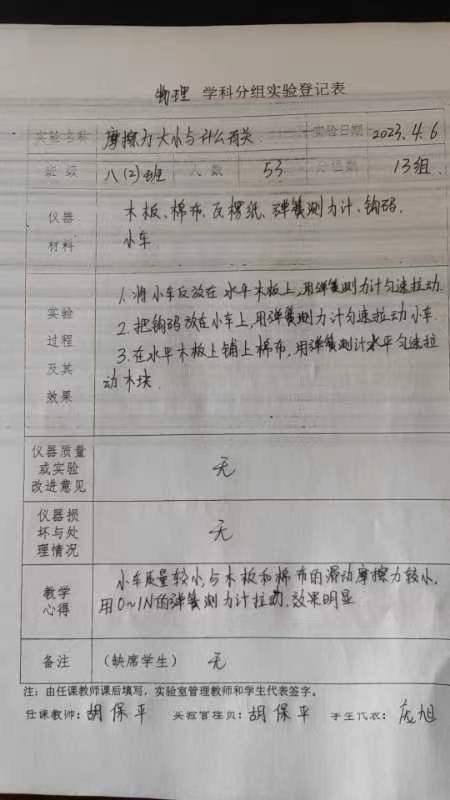 物理 学科分组实验登记表
实验名称 摩擦力大小与什么有关 实验日期 2023.4.6
班级 八(2)班 人数 53 分组数 13组
仪器材料 木板、棉布、瓦楞纸、弹簧测力计、钩码、
小车
实验过程及其效果 1.将小车反放在水平木板上,用弹簧测力计匀速拉动
2.把钩码放在小车上,用弹簧测力计匀速拉动小车.
3.在水平木板上铺上棉布,用弹簧测计水平匀速拉
动木块.
仪器质量或实验改进意见 无
仪器损坏与处理情况 无
教学心得 小车质量较小,与木板和棉布的滑动摩擦力较小,
用0~1N的弹簧测力计拉动.效果明显
备注 (缺席学生) 无
注:由任课教师课后填写,实验室管理教师和学生代表签字。
任课教师:胡保平 实验管理员:胡保平 学生代表:庞旭